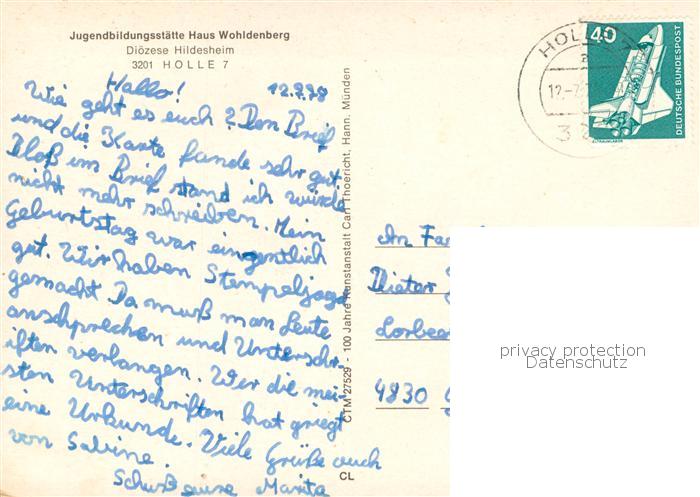 Jugendbildungsstätte Haus Wohldenberg
Diözese Hildesheim
3201 HOLLE 7
Hallo! 12.7.78
Wie geht es euch? Den Brief
und die Karte fande sehr gut.
Bloß im Brief stand ich würde
nicht mehr schreiben. Mein
Geburtstag war eingentlich
gut. Wir haben Stempeljagd
gemacht Da muß man Leute
anschprechen und Unterschr-
iften verlangen. Wer die mei-
sten Unterschriften hat griegt
eine Urkunde. Viele Grüße auch
von Sabine.
Schuß eure Marita
CTM 27529 - 100 Jahre Kunstanstalt Carl Thoericht, Hann. Münden
CL
HOLLE 7
a
12.-7
3 2
40
DEUTSCHE BUNDESPOST
An Fam
Dieter
Lorbee
4830
privacy protection
Datenschutz